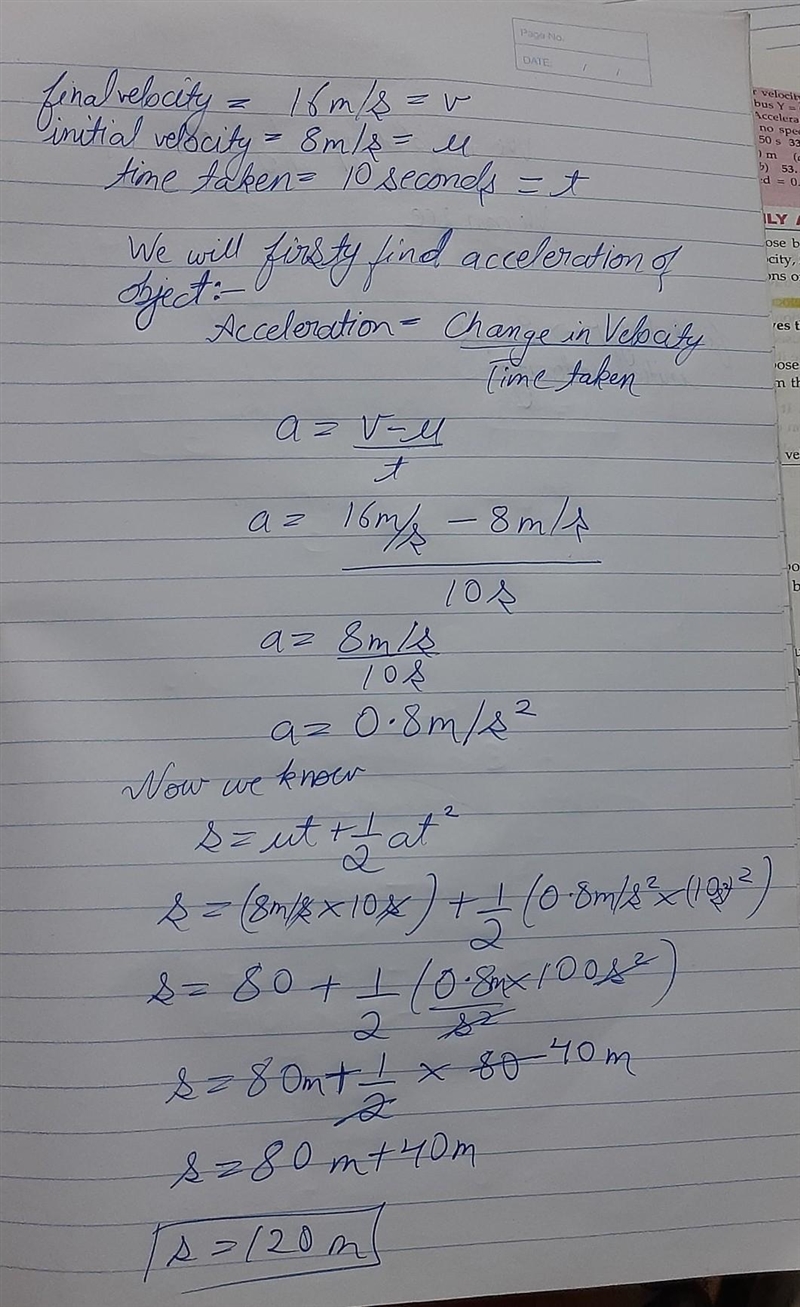 Page No.
DATE: / /
final velocity = 16m/s = v
initial velocity = 8m/s = u
time taken = 10 seconds = t
We will firsty find acceleration of
object:-
Acceleration = Change in Velocity
Time taken
a = v-u
t
a = 16m/s - 8m/s
10s
a = 8m/s
10s
a = 0.8m/s²
Now we know
s = ut + 1/2 at²
s = (8m/s × 10s) + 1/2 (0.8m/s² × (10s)²)
s = 80 + 1/2 (0.8m/s² × 100s²)
s = 80m + 1/2 × 80 40m
s = 80m + 40m
s = 120m
velocity
bus Y =
Accelera
no spe
50 s 33
) m (
b) 53.
ed = 0.
ILY A
ose b
city,
ons o
ves t
pose
m th
ve